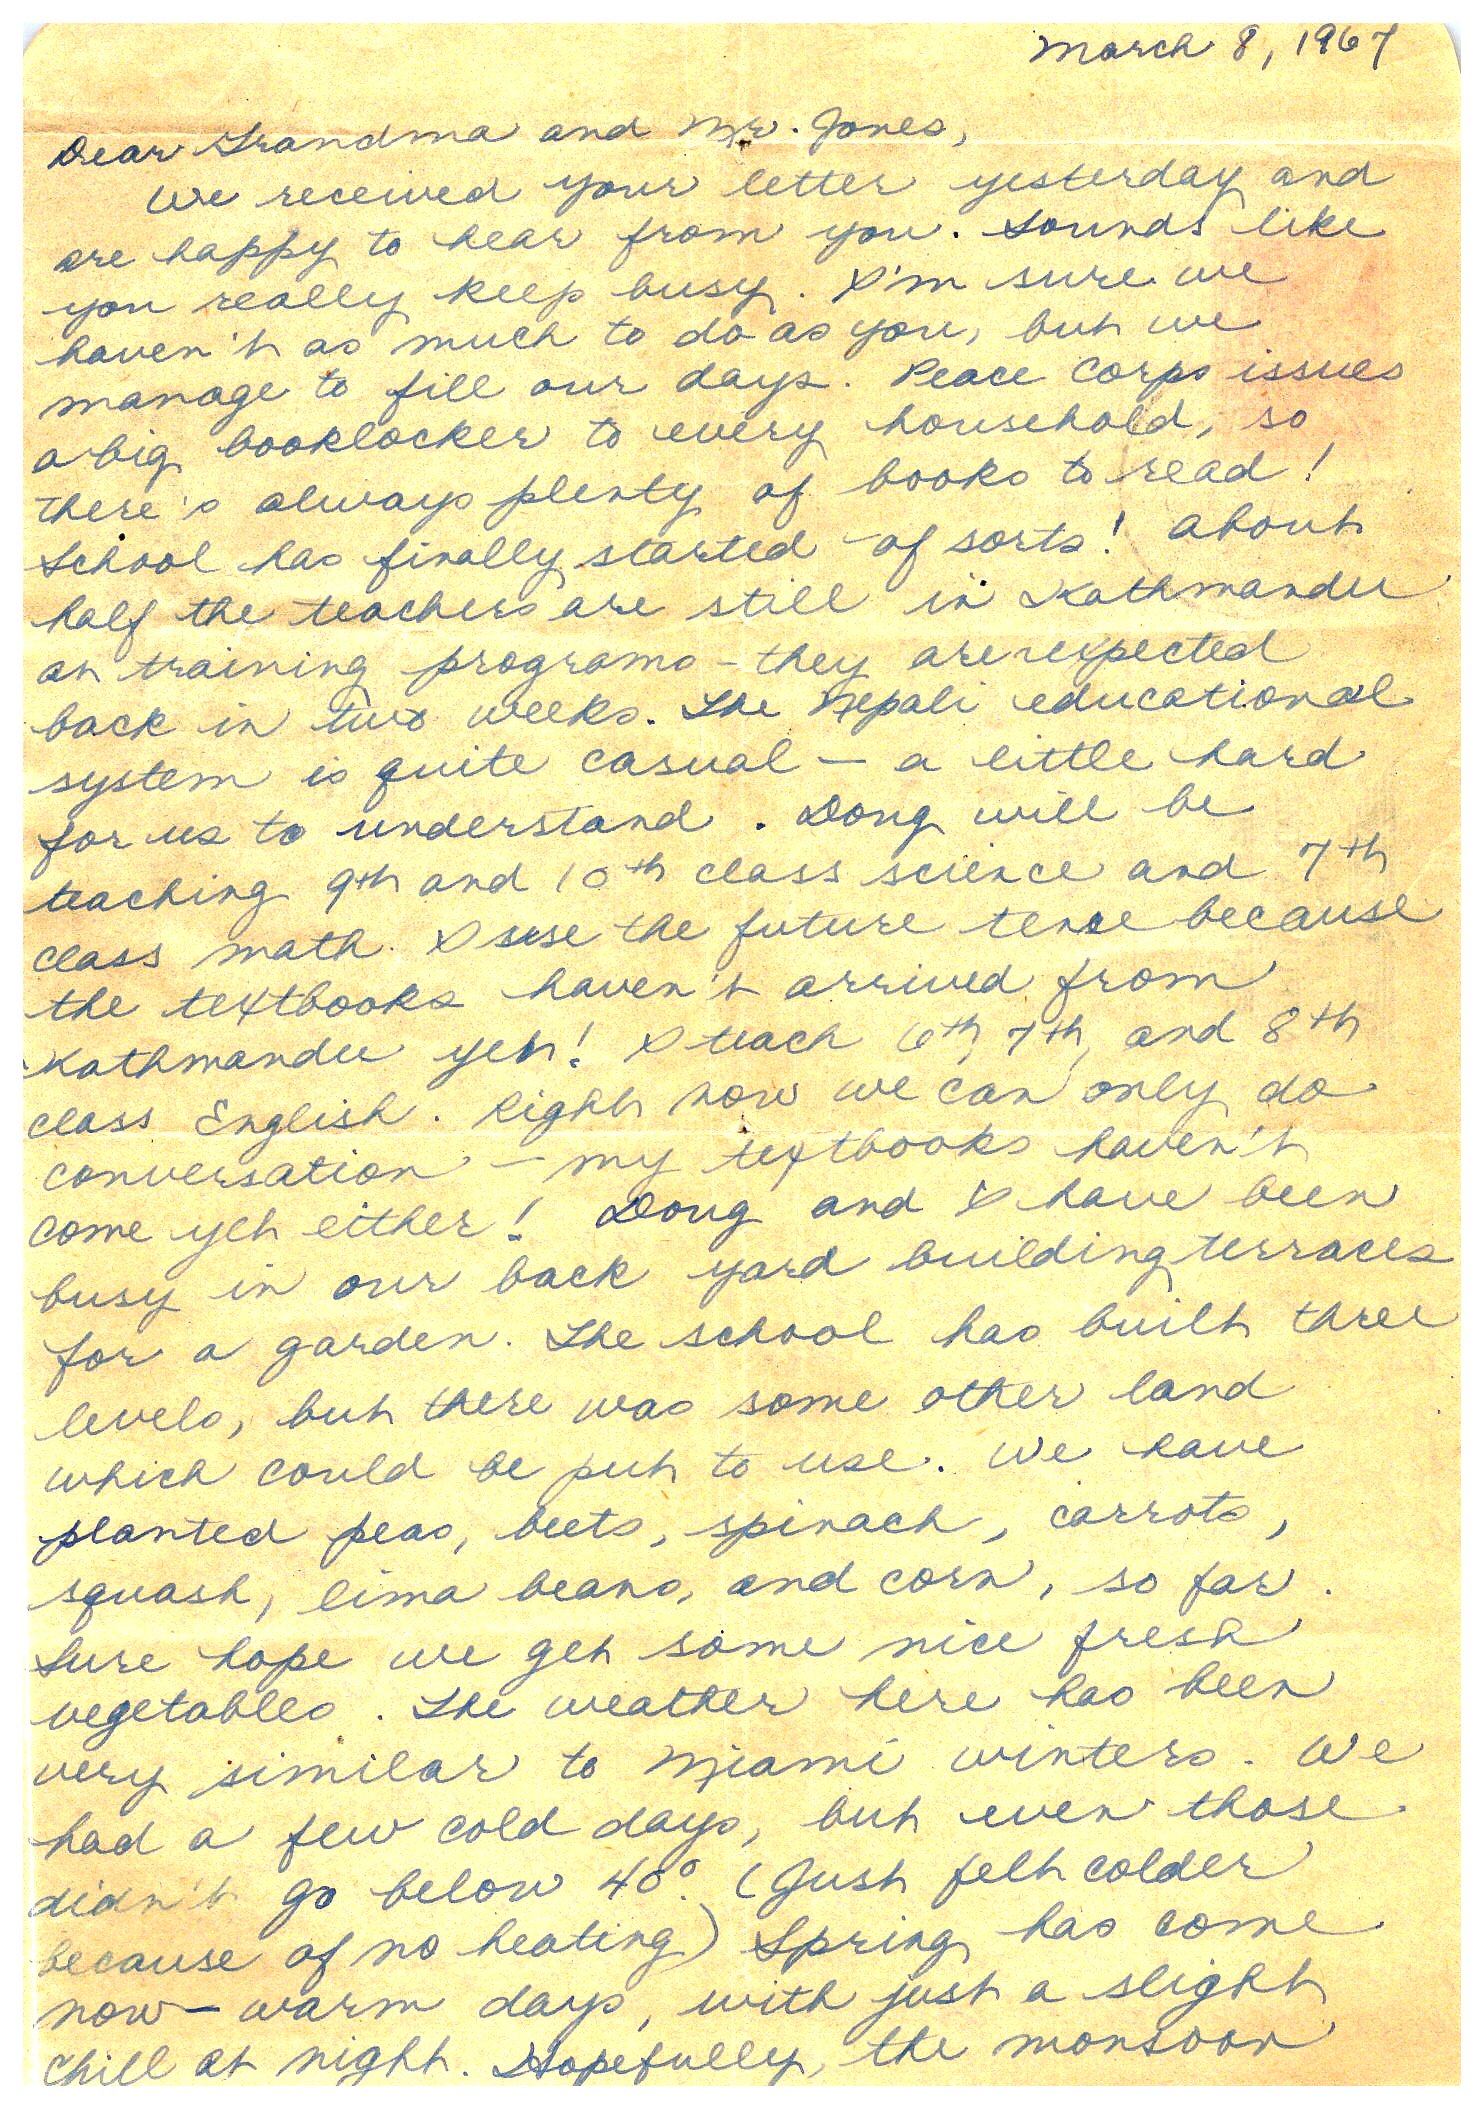 March 8, 1967
Dear Grandma and Mr. Jones,
We received your letter yesterday and
are happy to hear from you. Sounds like
you really keep busy. I'm sure we
haven't as much to do as you, but we
manage to fill our days. Peace Corps issues
a big booklocker to every household, so
there's always plenty of books to read!
School has finally started - of sorts! About
half the teachers are still in Kathmandu
at training programs - they are expected
back in two weeks. The Nepali educational
system is quite casual - a little hard
for us to understand. Doug will be
teaching 9th and 10th class science and 7th
class math. I use the future tense because
the textbooks haven't arrived from
Kathmandu yet! I teach 6th, 7th, and 8th
class English. Right now we can only do
conversation - my textbooks haven't
come yet either! Doug and I have been
busy in our back yard building terraces
for a garden. The school has built three
levels, but there was some other land
which could be put to use. We have
planted peas, beets, spinach, carrots,
squash, lima beans, and corn, so far.
Sure hope we get some nice fresh
vegetables. The weather here has been
very similar to Miami winters. We
had a few cold days, but even those
didn't go below 40°. (Just felt colder
because of no heating) Spring has come
now - warm days, with just a slight
chill at night. Hopefully, the monsoon